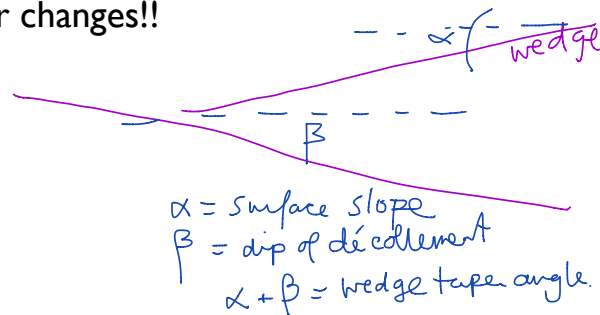 r changes!!
α
wedge
β
α = surface slope
β = dip of décollement
α + β = wedge taper angle.